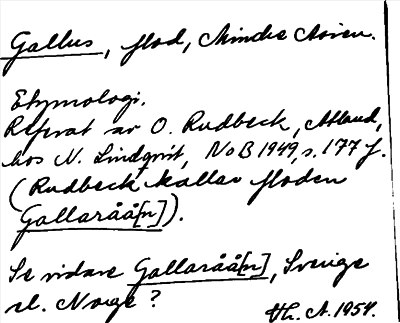 Gallus, flod, Mindre Asien.
Etymologi.
Referat av O. Rudbeck, Atland,
hos N. Lindqvist, NoB 1949, s. 177 f.
(Rudbeck kallar floden
Gallaråå[n]).
Se vidare Gallaråå[n], Sverige
el. Norge?
Th. A. 1954.